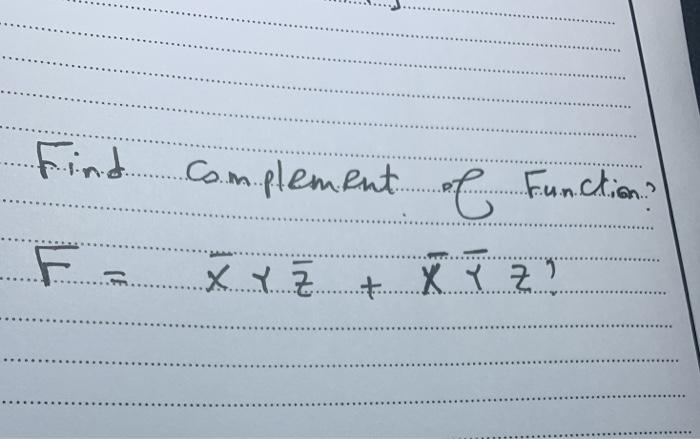 Find Complement of Function?
F = X̅ Y Z̅ + X̅ Y̅ Z?